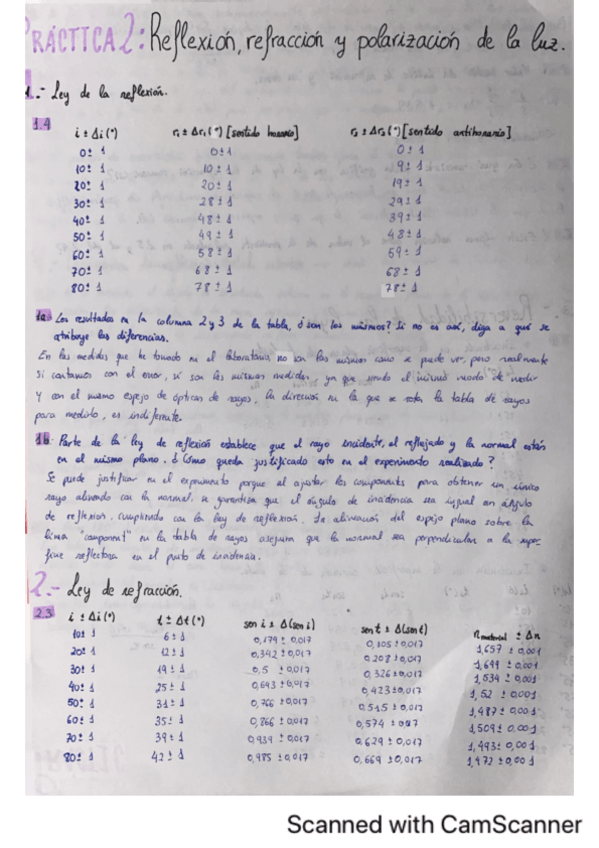 PRÁCTICA 2: Reflexión, refracción y polarización de la luz.
1.- Ley de la reflexión.
1.4
i ± Δi (°) r₁ ± Δr₁ (°) [sentido horario] r₂ ± Δr₂ (°) [sentido antihorario]
0 ± 1 0 ± 1 0 ± 1
10 ± 1 10 ± 1 9 ± 1
20 ± 1 20 ± 1 19 ± 1
30 ± 1 28 ± 1 29 ± 1
40 ± 1 48 ± 1 39 ± 1
50 ± 1 49 ± 1 48 ± 1
60 ± 1 58 ± 1 59 ± 1
70 ± 1 68 ± 1 68 ± 1
80 ± 1 78 ± 1 78 ± 1
1a Los resultados en la columna 2 y 3 de la tabla, ¿son los mismos? Si no es así, diga a qué se
atribuye las diferencias.
En las medidas que he tomado en el laboratorio no son las mismas como se puede ver, pero realmente
si contamos con el error, sí son las mismas medidas, ya que siendo el mismo modo de medir
y con el mismo espejo de óptica de rayos, la dirección en la que se rota la tabla de rayos
para medirlo, es indiferente.
1b Parte de la ley de reflexión establece que el rayo incidente, el reflejado y la normal están
en el mismo plano. ¿Cómo queda justificado esto en el experimento realizado?
Se puede justificar en el experimento porque al ajustar los componentes para obtener un único
rayo alineado con la normal, se garantiza que el ángulo de incidencia sea igual an ángulo
de reflexión, cumpliendo con la ley de reflexión. La alineación del espejo plano sobre la
línea "component" en la tabla de rayos asegura que la normal sea perpendicular a la super-
ficie reflectora en el punto de incidencia.
2.- Ley de refracción.
2.3 i ± Δi (°) t ± Δt (°) sen i ± Δ(sen i) sen t ± Δ(sen t) n material ± Δn
10 ± 1 6 ± 1 0,174 ± 0,017 0,105 ± 0,017 1,657 ± 0,001
20 ± 1 12 ± 1 0,342 ± 0,017 0,208 ± 0,017 1,644 ± 0,001
30 ± 1 19 ± 1 0,5 ± 0,017 0,326 ± 0,017 1,534 ± 0,001
40 ± 1 25 ± 1 0,643 ± 0,017 0,423 ± 0,017 1,52 ± 0,001
50 ± 1 31 ± 1 0,766 ± 0,017 0,515 ± 0,017 1,487 ± 0,001
60 ± 1 35 ± 1 0,866 ± 0,017 0,574 ± 0,017 1,509 ± 0,001
70 ± 1 39 ± 1 0,939 ± 0,017 0,629 ± 0,017 1,493 ± 0,001
80 ± 1 42 ± 1 0,985 ± 0,017 0,669 ± 0,017 1,472 ± 0,001
Scanned with CamScanner